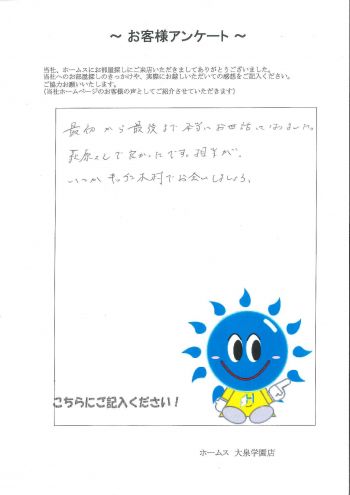 ～ お客様アンケート ～
当社、ホームスにお部屋探しにご来店いただきましてありがとうございました。
当社へのお部屋探しのきっかけや、実際にお越しいただいての感想をご記入ください。
ご協力お願いいたします。
(当社ホームページのお客様の声としてご紹介させていただきます)
最初から最後まで本当にお世話になりました。
萩原さんで良かったです。担当が。
いつか またお会いしましょう。
こちらにご記入ください！
ホームス 大泉学園店